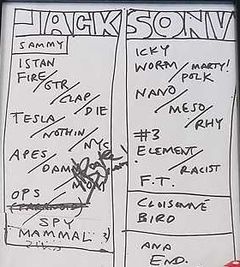 JACKSONV
SAMMY
ISTAN
FIRE/GTR/CLAP/DIE
TESLA/NOTHIN/NYC
APES/DAM
OPS
SPY
MAMMAL
ICKY
WORM/MARTY!
POLK
NANO/MESO/RHY
#3
ELEMENT/RACIST
F.T.
CLOISONNÉ
BIRD
ANA
END.